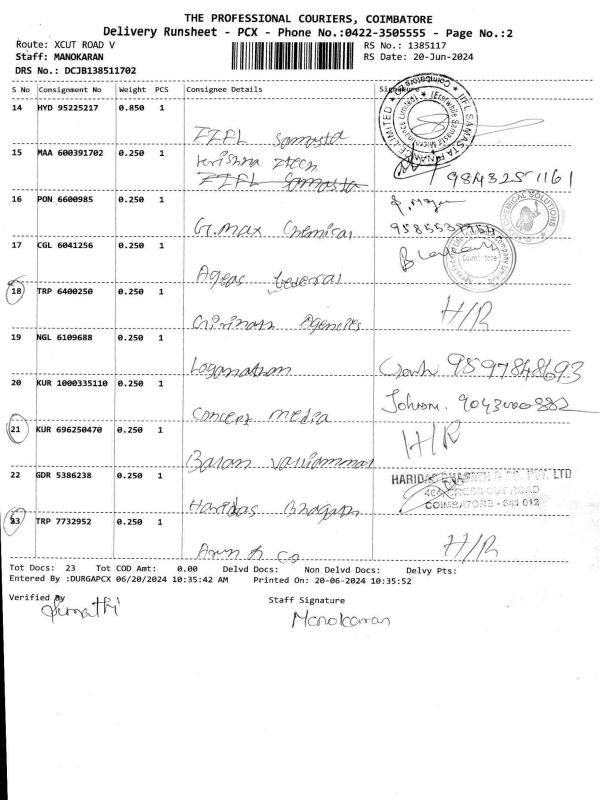 THE PROFESSIONAL COURIERS, COIMBATORE
Delivery Runsheet - PCX - Phone No.:0422-3505555 - Page No.:2
Route: XCUT ROAD V RS No.: 1385117
Staff: MANOKARAN RS Date: 20-Jun-2024
DRS No.: DCJB138511702
S No Consignment No Weight PCS Consignee Details Signature
14 HYD 95225217 0.850 1
IIFL Samasta
15 MAA 600391702 0.250 1
Krishna Ztech
IIFL Samasta
9843251161
16 PON 6600985 0.250 1
G.max Chemical
17 CGL 6041256 0.250 1
Ageas Federal
18 TRP 6400250 0.250 1 H/R
Girinath Agencies
19 NGL 6109688 0.250 1
Loganathan 9597848693
20 KUR 1000335110 0.250 1
Concept media
21 KUR 696250470 0.250 1 H/R
22 GDR 5386238 0.250 1 HARIDAS BHAGATH & CO. PVT. LTD
404, CROSS CUT ROAD
COIMBATORE - 641 012
Haridas Bhagath
23 TRP 7732952 0.250 1 H/R
Arun & Co
Tot Docs: 23 Tot COD Amt: 0.00 Delvd Docs: Non Delvd Docs: Delvy Pts:
Entered By :DURGAPCX 06/20/2024 10:35:42 AM Printed On: 20-06-2024 10:35:52
Verified By Staff Signature
Manokaran